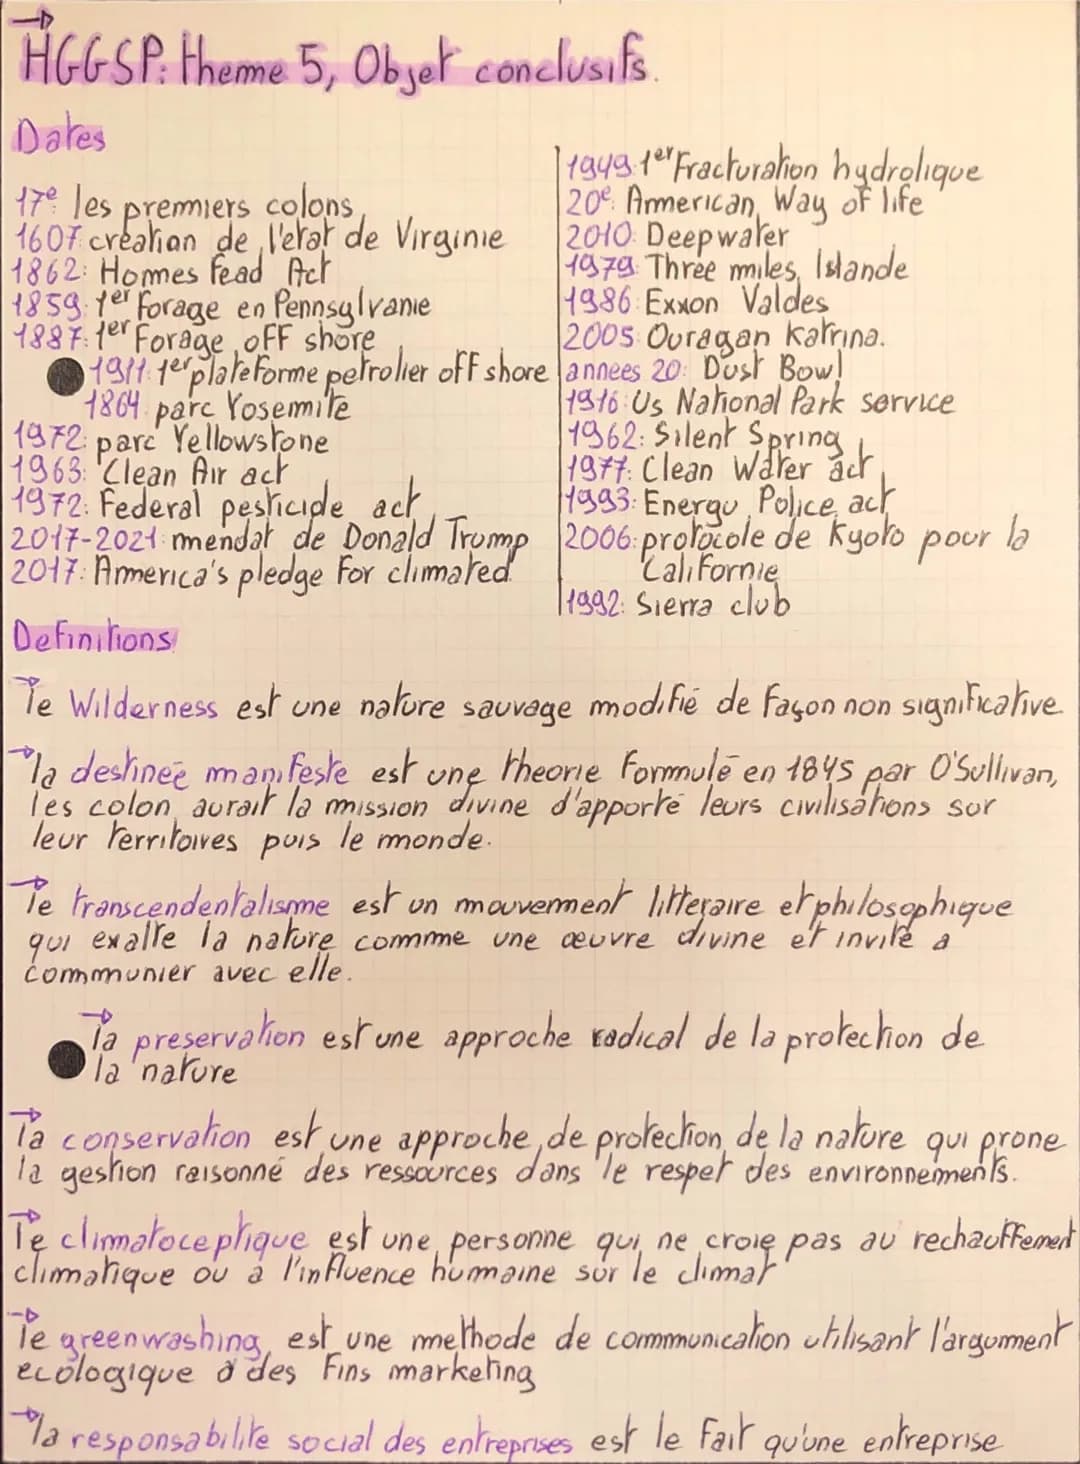 HGGSP: theme 5, Objet conclusifs.
Dates
17e: les premiers colons
1607: création de l'état de Virginie
1862: Hommes fead Act
1859: 1er forage en Pennsylvanie
1887: 1er forage off shore
1911: 1er plateforme petrolier off shore
1864: parc Yosemite
1972: parc Yellowstone
1963: Clean Air act
1972: Federal pesticide act
2017-2021: mendat de Donald Trump
2017: America's pledge for climated.
1949: 1er Fracturation hydrolique
20e: American Way of life
2010: Deepwater
1979: Three miles Islande
1986: Exxon Valdes
2005: Ouragan Katrina.
annees 20: Dust Bowl
1916: Us National Park service
1962: Silent Spring
1977: Clean Water act
1993: Energu Police act
2006: protocole de Kyoto pour la
Californie
1992: Sierra club
Definitions
→ le Wilderness est une nature sauvage modifié de façon non significative
→ la destinée manifeste est une theorie formulé en 1845 par O'Sullivan,
les colon aurait la mission divine d'apporté leurs civilisations sur
leur territoires puis le monde.
→ le transcendentalisme est un mouvement litteraire et philosophique
qui exalte la nature comme une œuvre divine et invite a
communier avec elle.
→ la preservation est une approche radical de la protection de
la nature
→ la conservation est une approche de protection de la nature qui prone
la gestion raisonné des ressources dans le respet des environnements.
→ le climatoceptique est une personne qui ne croie pas au rechauffement
climatique ou à l'influence humaine sur le climat
→ le greenwashing est une methode de communication utilisant l'argument
ecologique à des fins marketing
→ la responsabilite social des entreprises est le fait qu'une entreprise